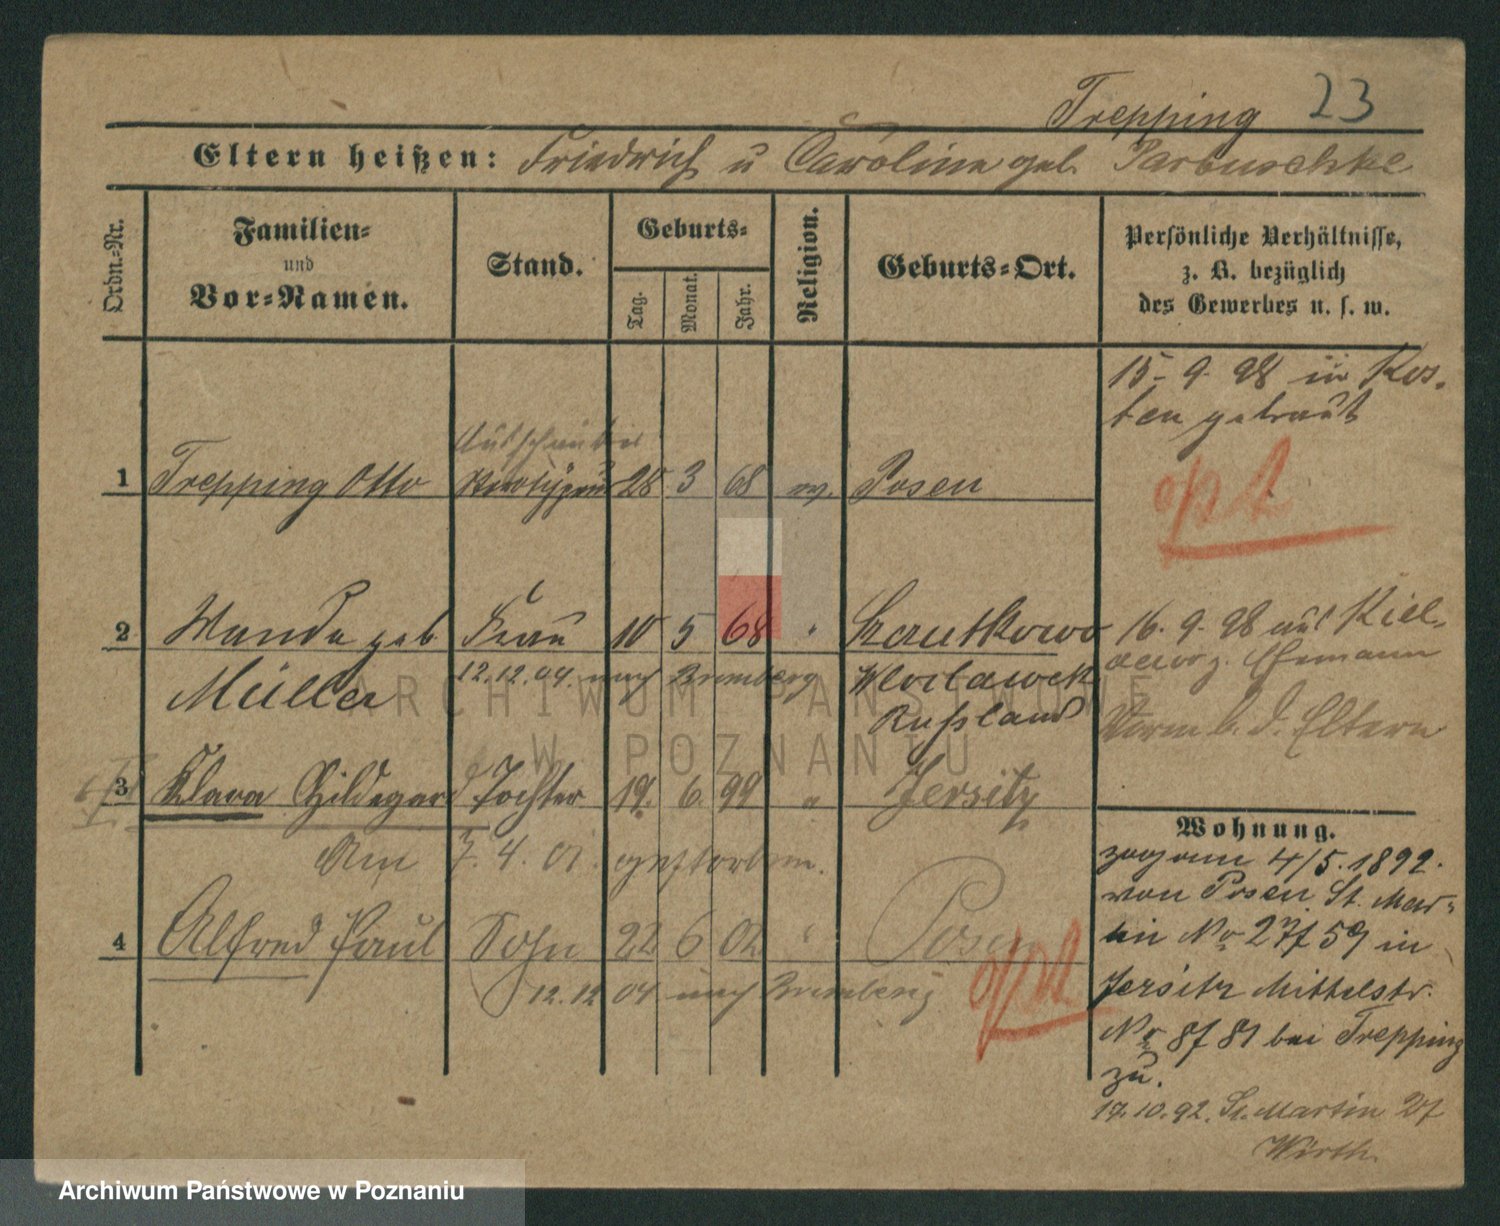 Trepping 23
Eltern heißen: Friedrich u Caroline geb. Partuschke
Ordn.-Nr.
Familien-
und
Vor-Namen.
Stand.
Geburts-
Tag.
Monat.
Jahr.
Religion.
Geburts-Ort.
Persönliche Verhältnisse,
z. B. bezüglich
des Gewerbes u. s. w.
15. 9. 98 in Kos-
ten getraut
1 Trepping Otto 28 3 68 ev. Posen
opt
2 Wanda geb Frau 10 5 68 " Szrutkowo
Müller 12.12.04. nach Bromberg Wloclawek
Rußland
16. 9. 98 aus Kiel-
Ehemann
Vorm b. d. Eltern
3 Klara Hildegard Tochter 19. 6. 99 " Jersitz
Am 7. 4. 01. gestorben.
4 Alfred Paul Sohn 22 6 02 " Posen
12.12 04 nach Bromberg
opt
Wohnung.
zog am 4/5. 1892.
von Posen St. Mar-
tin No 27 59 in
Jersitz Mittelstr.
No 8 81 bei Trepping
zu.
17.10.92. St. Martin 27
Wirth.
ARCHIWUM PAŃSTWOWE
W POZNANIU
Archiwum Państwowe w Poznaniu